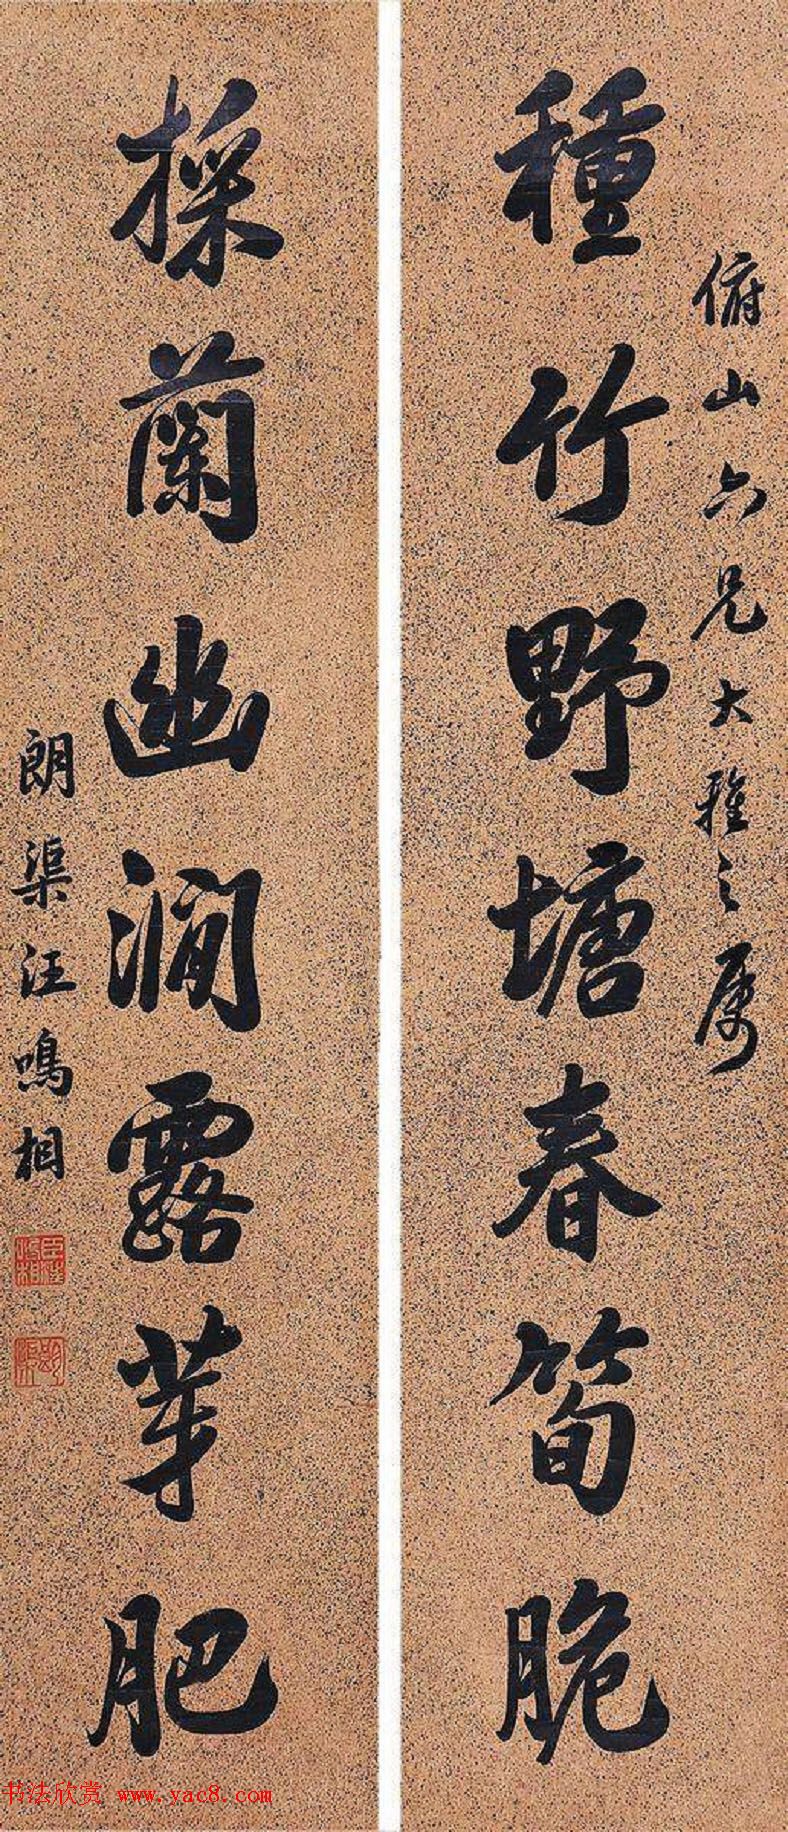 俯山六兄大雅之属
種竹野塘春筍脆
採蘭幽澗露芽肥
朗渠汪鳴相
书法欣赏 www.yac8.com